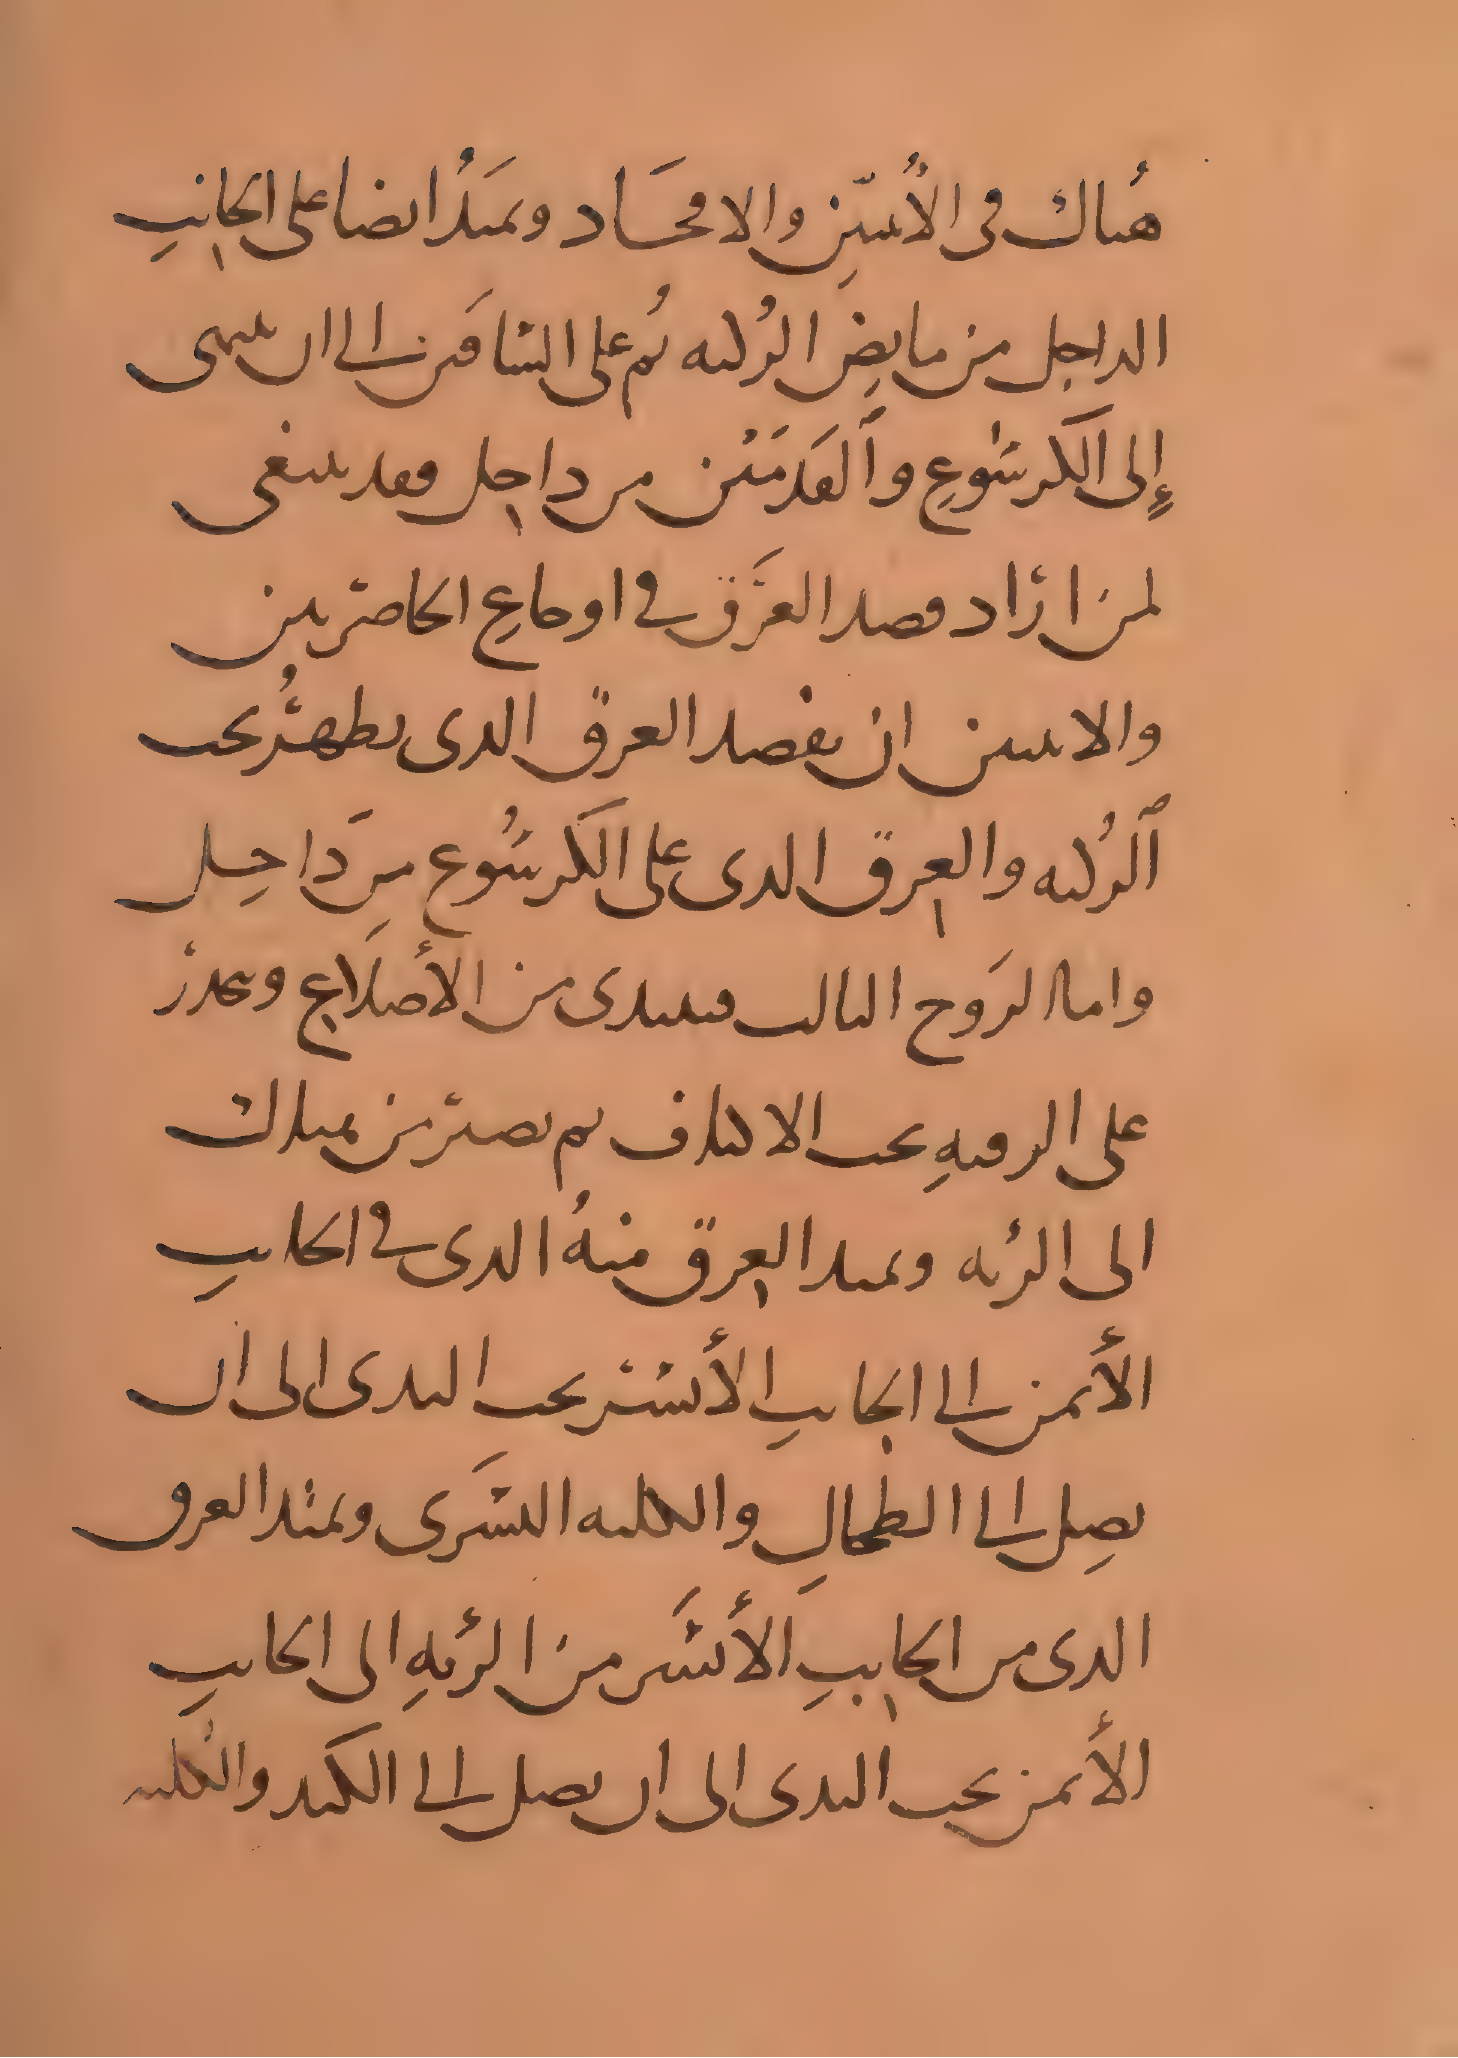 هُناك فى الأُنثيين والافخاد ويمتدُّ ايضا على الجانبِ
الداخل من مابِضِ الرُكبه ثُم على الساقَين الى ان ينتهى
إِلى الكَرسُوعِ وٱلقَدمَين من داخل وقد ينبغى
لمن اراد فصد العرَق فى اوجاعِ الخاصرتين
والانثيين ان يفصد العرق الدى يظهرُ تحت
ٱلرُكبه والعرق الدى على الكَرسُوع مِن دَاخِل
واما الزَوج الثالث فيبتدى من الأَصداغ وينحدر
على الرقبهِ تحت الاكتاف ثم يصير من هناك
الى الرئه ويمتد العرق منهُ الدى فى الجانبِ
الأَيمن الى الجانبِ الأَيسر تحت الثدى الى ان
يصِل الى الطحالِ والكليه اليسَرى ويمتد العرق
الدى من الجانبِ الأَيسَر من الرئهِ الى الجانبِ
الأَيمن تحت الثدى الى ان يصل الى الكَبد والكُليه